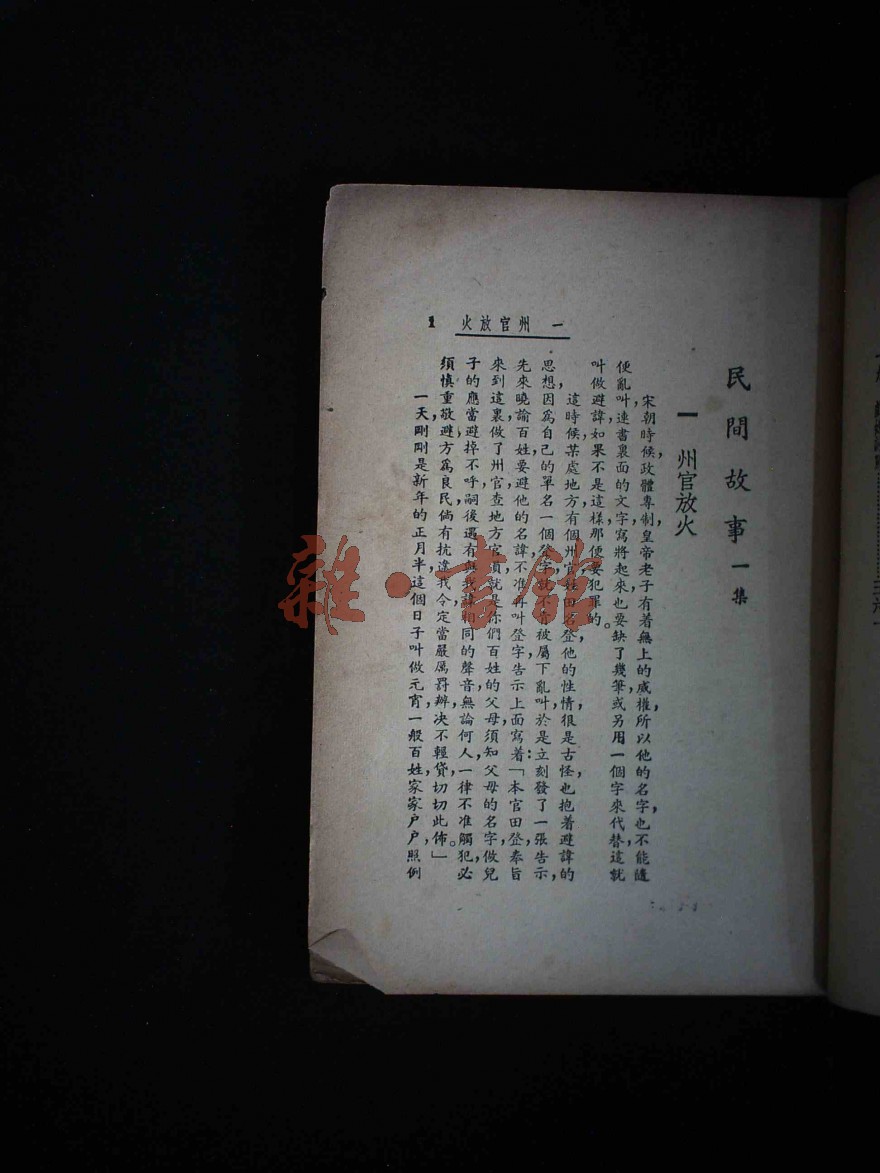 民間故事 一集
一 州官放火
宋朝時候,政體專制,皇帝老子有着無上的威權,所以他的名字,也不能隨
便亂叫,連書裏面的文字寫將起來,也要缺了幾筆,或另用一個字來代替,這就
叫做避諱,如果不是這樣,那便要犯罪的。
這時候,某處地方,有個州官,姓田名登,他的性情,很是古怪,也抱着避諱的
思想,因爲自己的單名一個登字,就不肯被屬下亂叫,於是立刻發了一張告示,
先來曉諭百姓,要避他的名諱,不准再叫登字,告示上面寫着:「本官田登,奉旨
來到這裏,做了州官,查地方官須就是你們百姓的父母,須知父母的名字,做兒
子的應當避掉不呼,嗣後遇有與我諱相同的聲音,無論何人,一律不准觸犯,必
須慎重敬避,方爲良民,倘有抗違我令,定當嚴厲罸辦,決不輕貸,切切此佈。」
一天,剛剛是新年的正月半,這個日子叫做元宵,一般百姓,家家户户,照例
一 州官放火 1
雜·書館